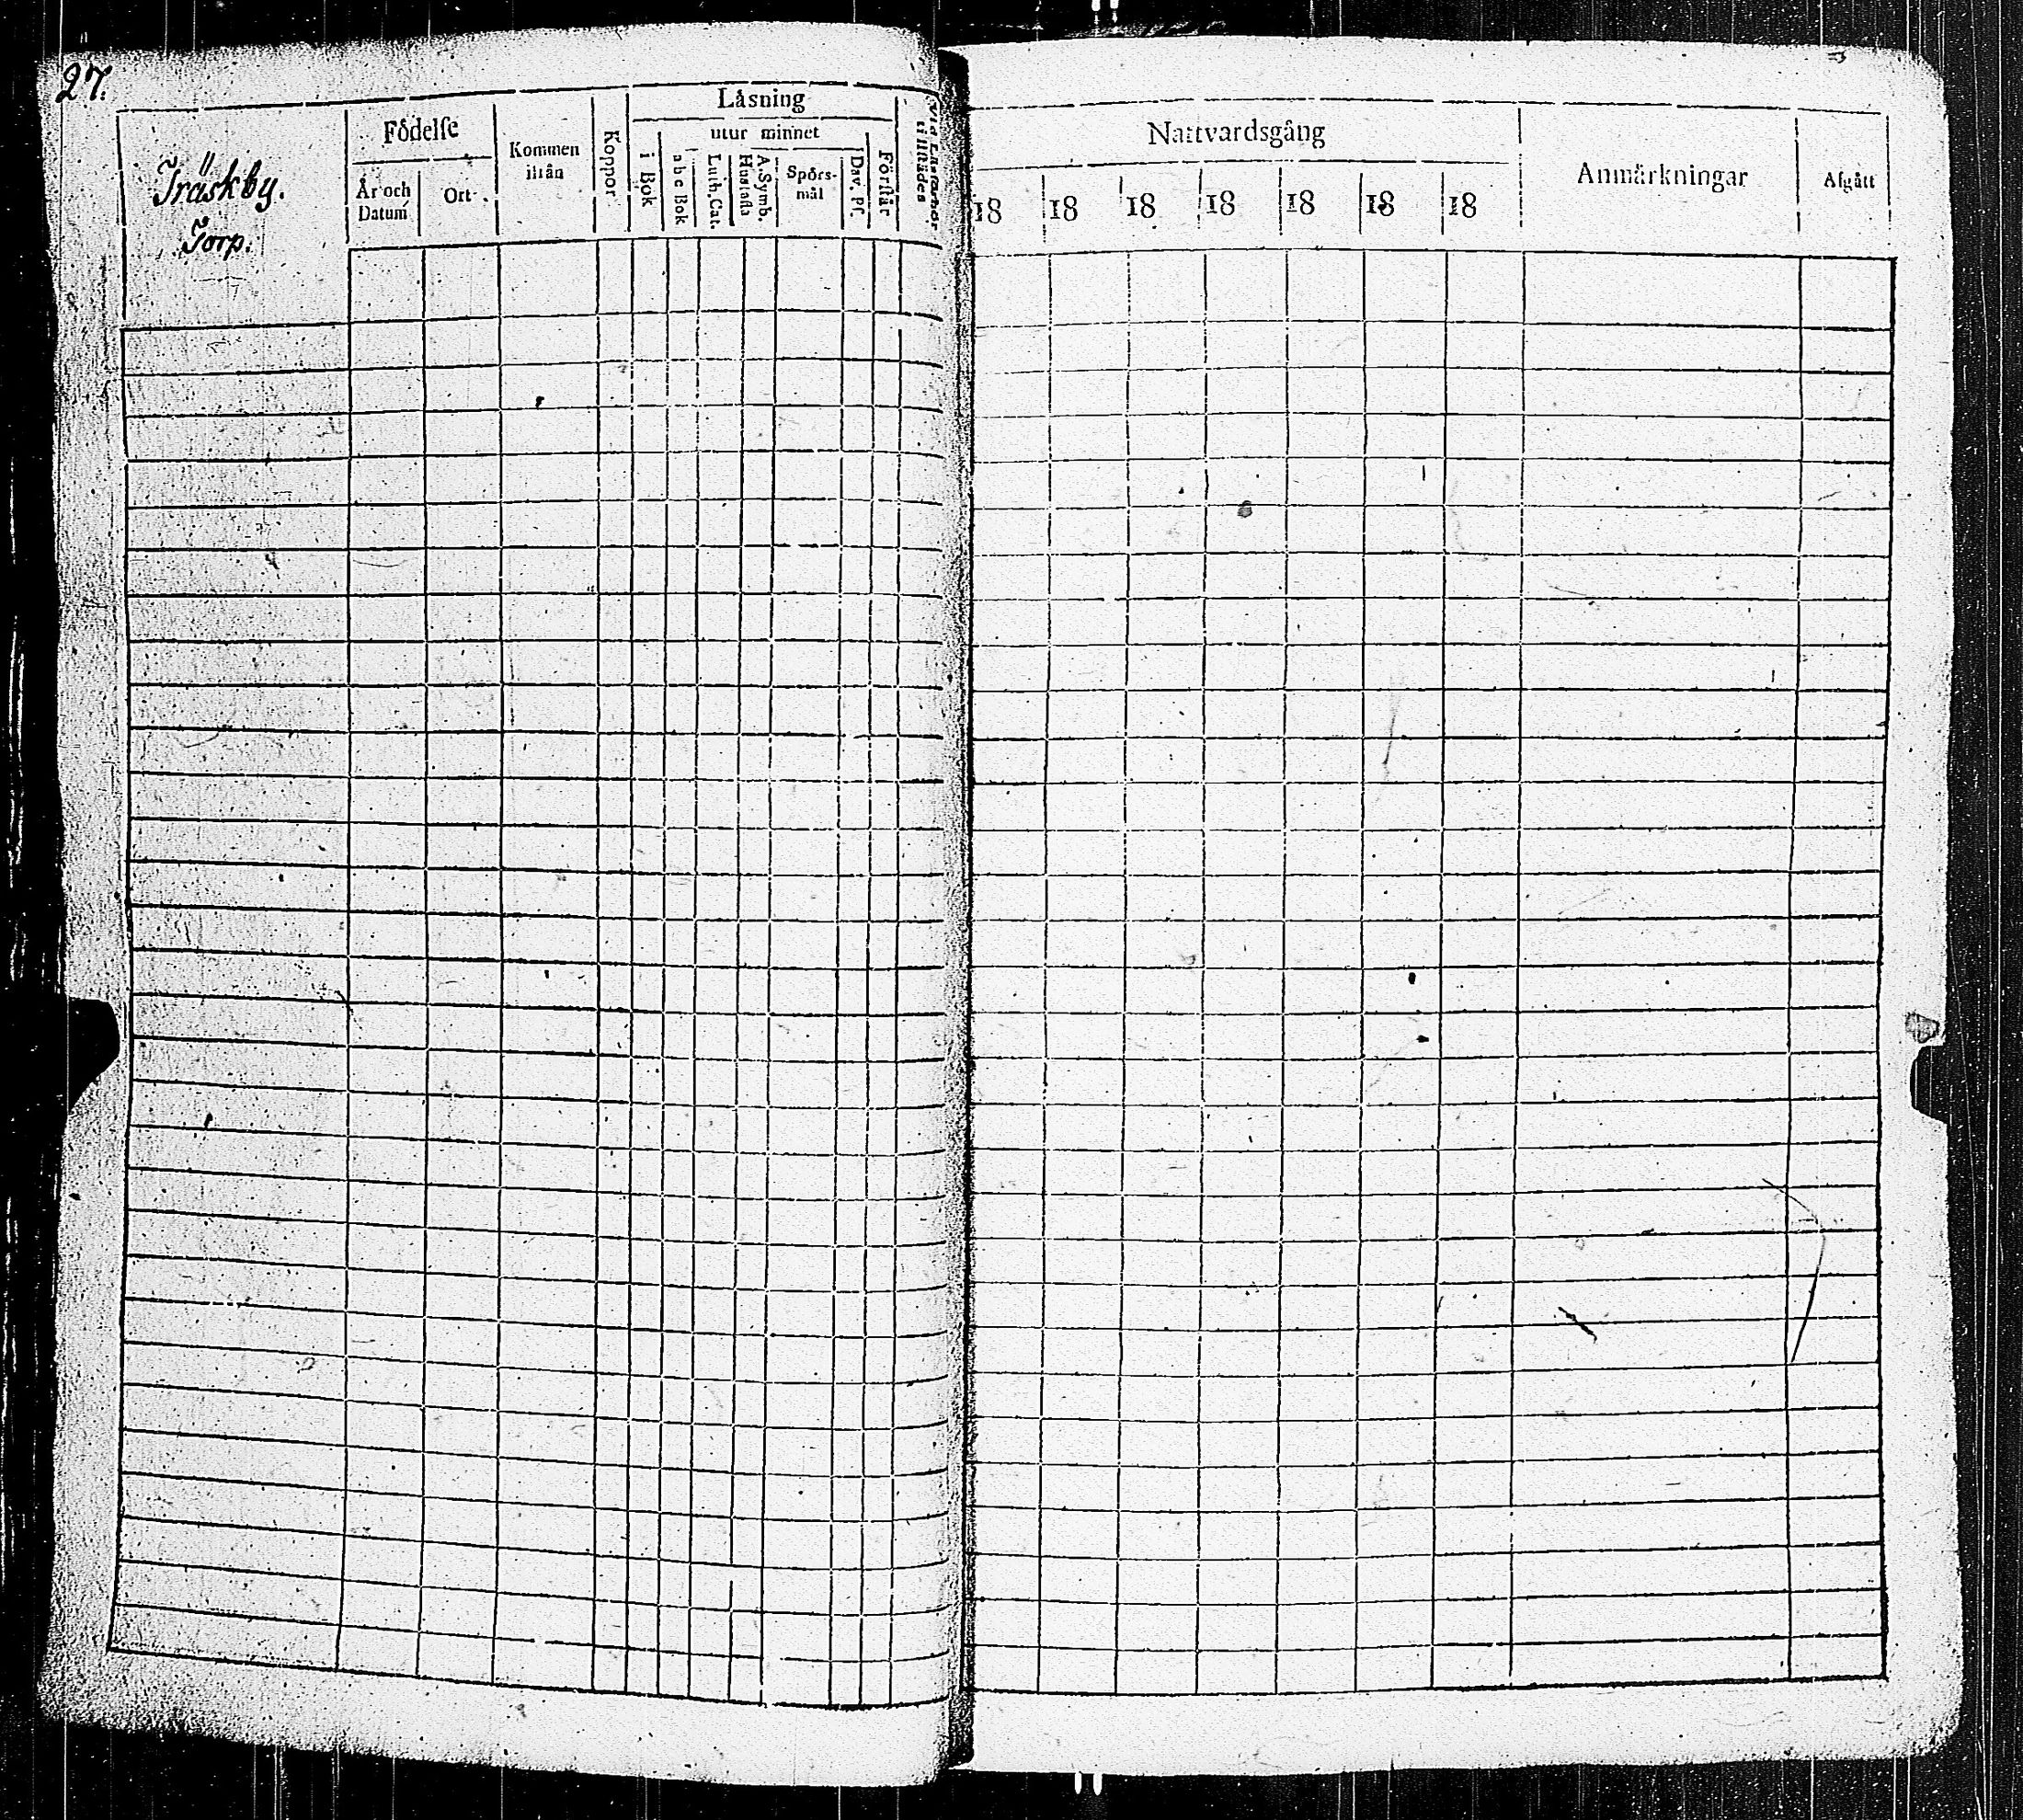 27.
Träskby.
Torp.
Födelse
År och Datum
Ort
Kommen ifrån
Koppor
Läsning
i Bok
utur minnet
abc Bok
Luth. Cat.
A. Symb. Hustafla
Spörs-
mål
Dav. Ps.
Förstår
Vid Läseförhör tillstädes
Nattvardsgång
18 18 18 18 18 18 18
Anmärkningar
Afgått